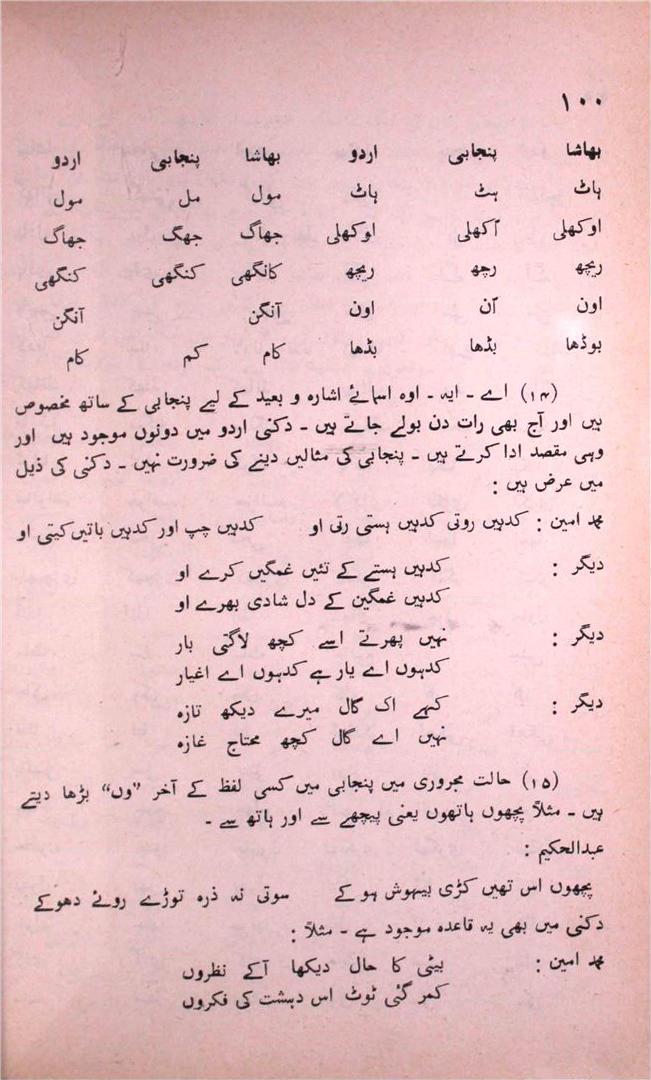 ۱۰۰
بھاشا پنجابی اردو بھاشا پنجابی اردو
ہاٹ ہٹ ہاٹ مول مل مول
اوکھلی اُکھلی اوکھلی جھاگ جھگ جھاگ
ریچھ رچھ ریچھ کانگھی کنگھی کنگھی
اون اُن اون آنگن آنگن
بوڈھا بڈھا بڈھا کام کم کام
(۱۴) اے ۔ ایہ ۔ اوہ اسمائے اشارہ و بعید کے لیے پنجابی کے ساتھ مخصوص
ہیں اور آج بھی رات دن بولے جاتے ہیں ۔ دکنی اردو میں دونوں موجود ہیں اور
وہی مقصد ادا کرتے ہیں ۔ پنجابی کی مثالیں دینے کی ضرورت نہیں ۔ دکنی کی ذیل
میں عرض ہیں :
محمد امین : کدہیں روتی کدہیں ہستی رتی او کدہیں چپ اور کدہیں باتیں کیتی او
دیگر : کدہیں ہستے کے تئیں غمگیں کرے او
کدہیں غمگین کے دل شادی بھرے او
دیگر : نہیں پھرتے اسے کچھ لاگتی بار
کدہوں اے یار ہے کدہوں اے اغیار
دیگر : کہے اک گال میرے دیکھ تازہ
نہیں اے گال کچھ محتاج غازہ
(۱۵) حالت مجروری میں پنجابی میں کسی لفظ کے آخر ”وں“ بڑھا دیتے
ہیں ۔ مثلاً پچھوں ہاتھوں یعنی پیچھے سے اور ہاتھ سے ۔
عبدالحکیم :
پچھوں اس تھیں کڑی بیہوش ہو کے سوتی نہ ذرہ توڑے روئے دھوکے
دکنی میں بھی یہ قاعدہ موجود ہے ۔ مثلاً :
محمد امین : بیٹی کا حال دیکھا آکے نظروں
کمر گئی ٹوٹ اس دہشت کی فکروں